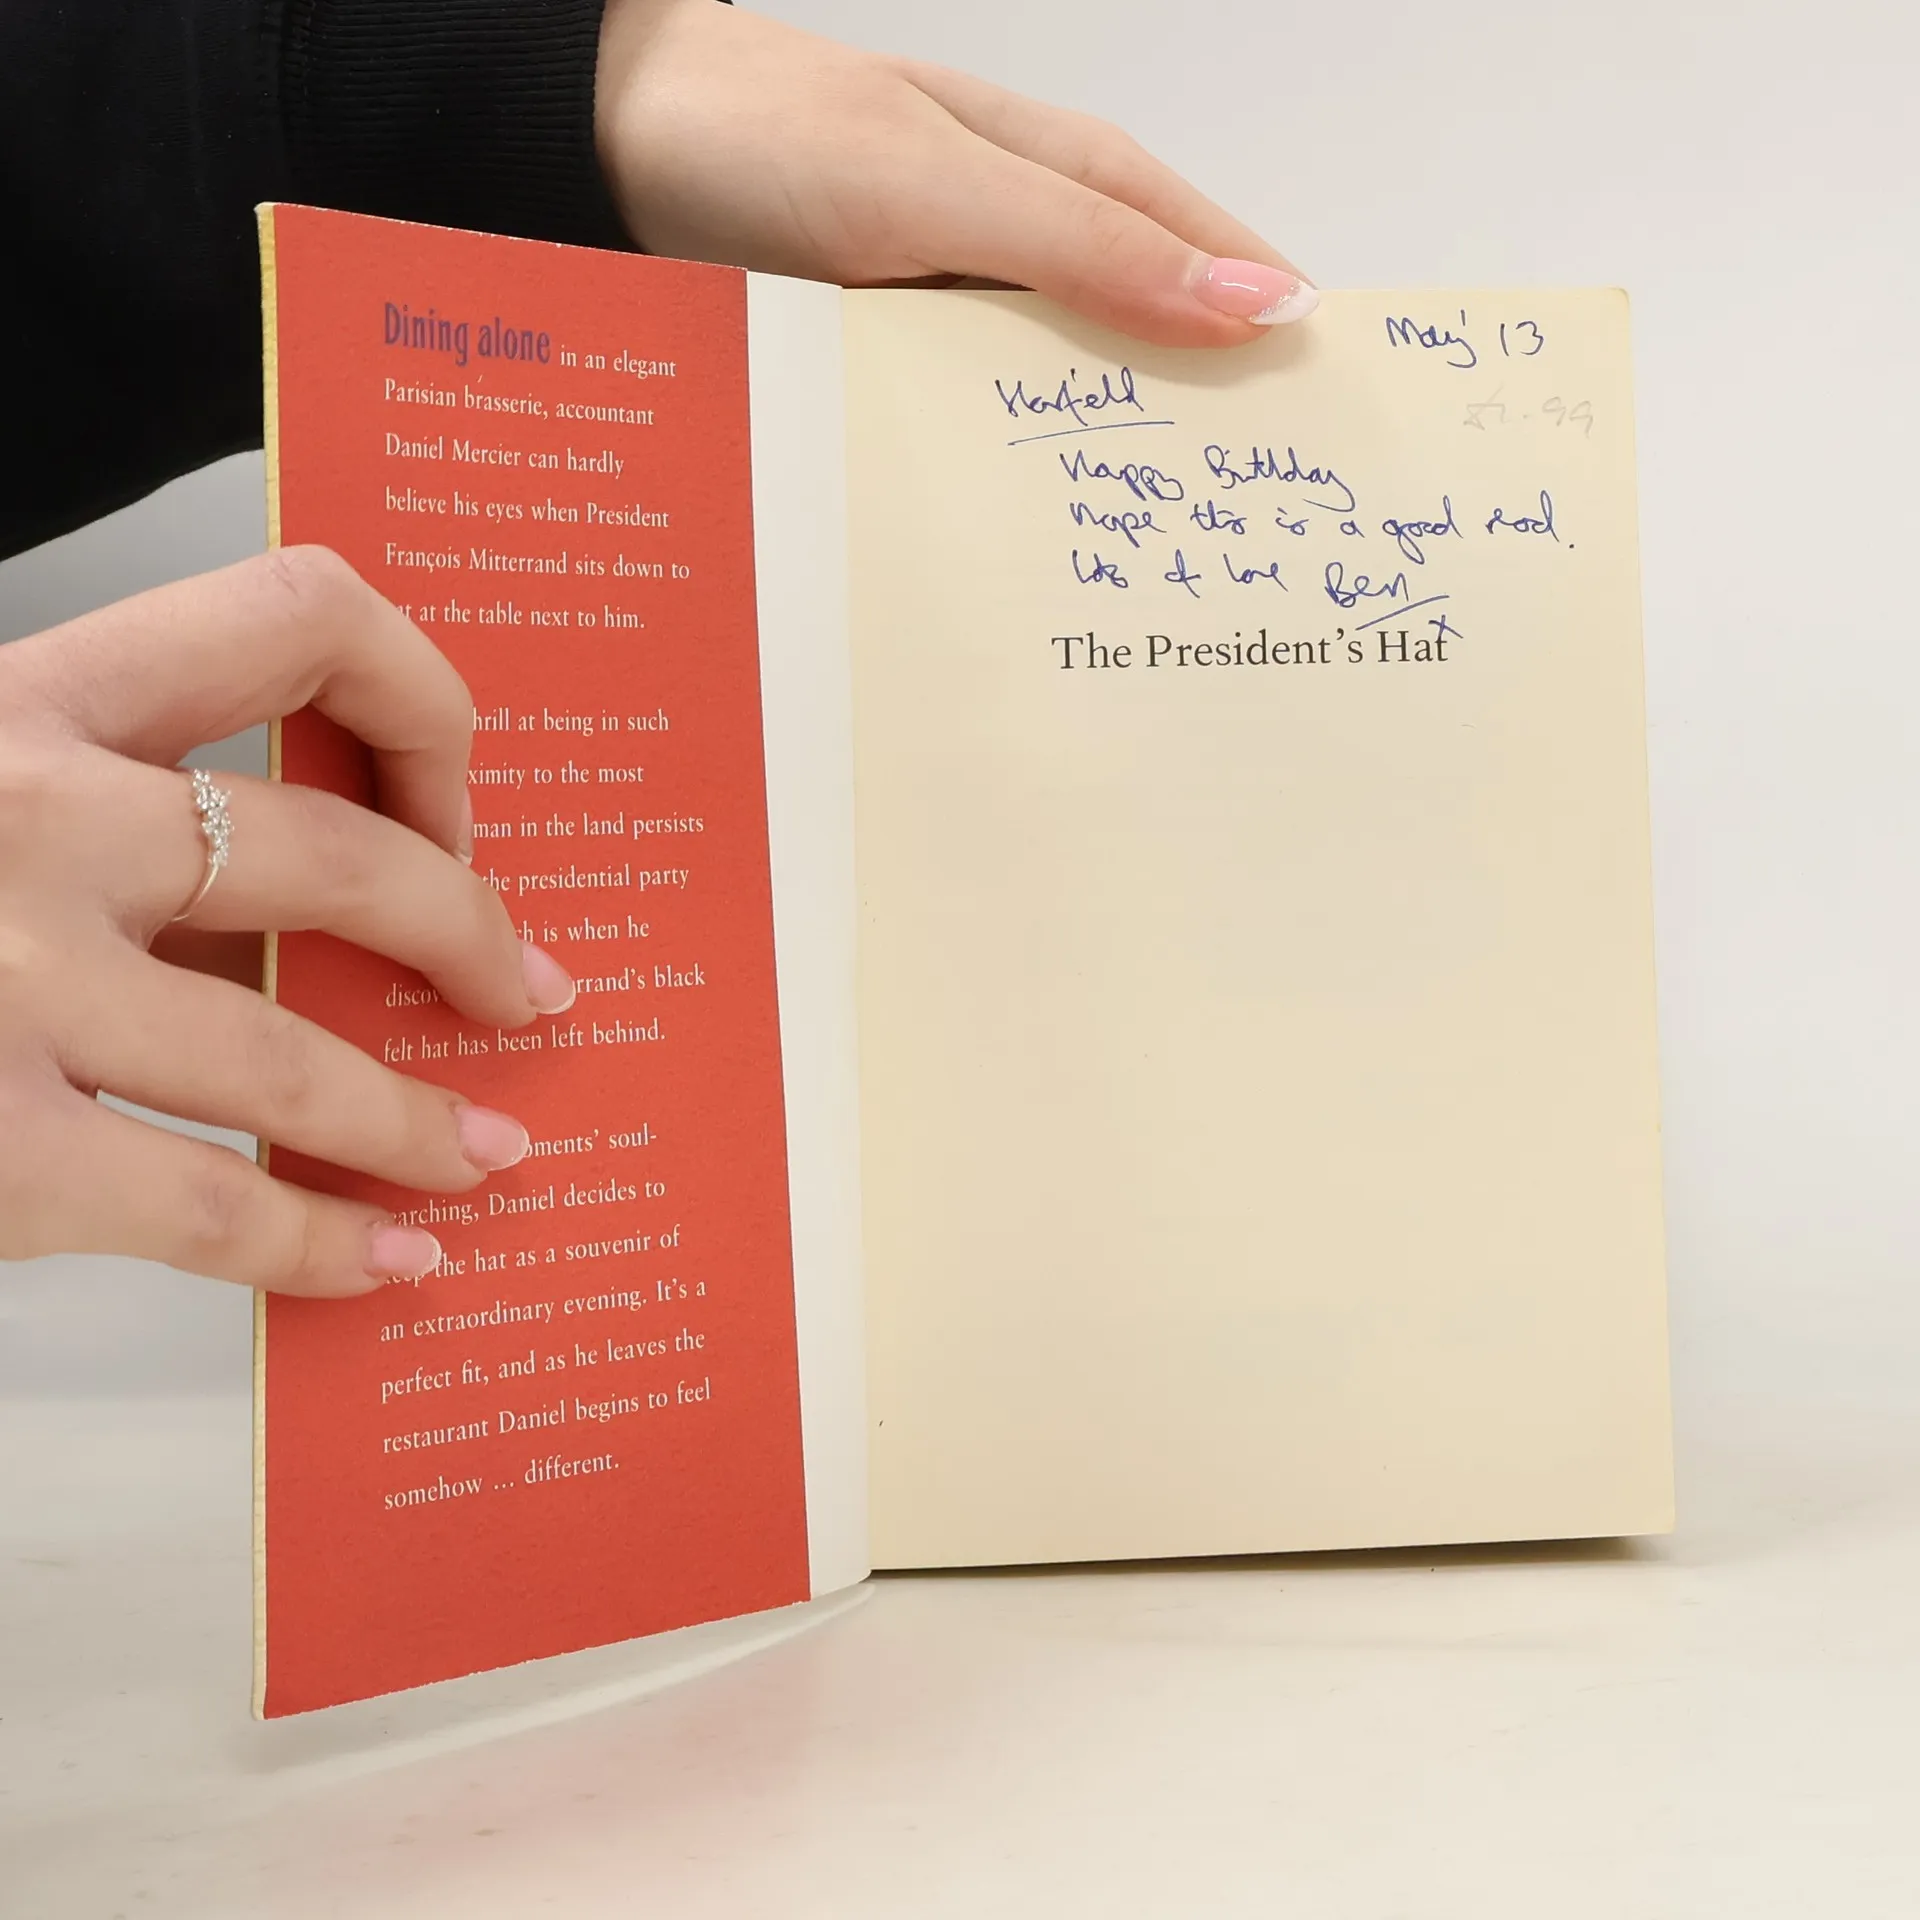 Dining alone in an elegant
Parisian brasserie, accountant
Daniel Mercier can hardly
believe his eyes when President
François Mitterrand sits down to
at the table next to him.
at being in such
to the most
man in the land persists
presidential party
is when he
black
felt hat has been left behind.
soul-
Daniel decides to
the hat as a souvenir of
an extraordinary evening. It's a
perfect fit, and as he leaves the
restaurant Daniel begins to feel
somehow ... different.
May 13
Happy Birthday
Hope this is a good read.
lots of love Ben
x
The President's Hat